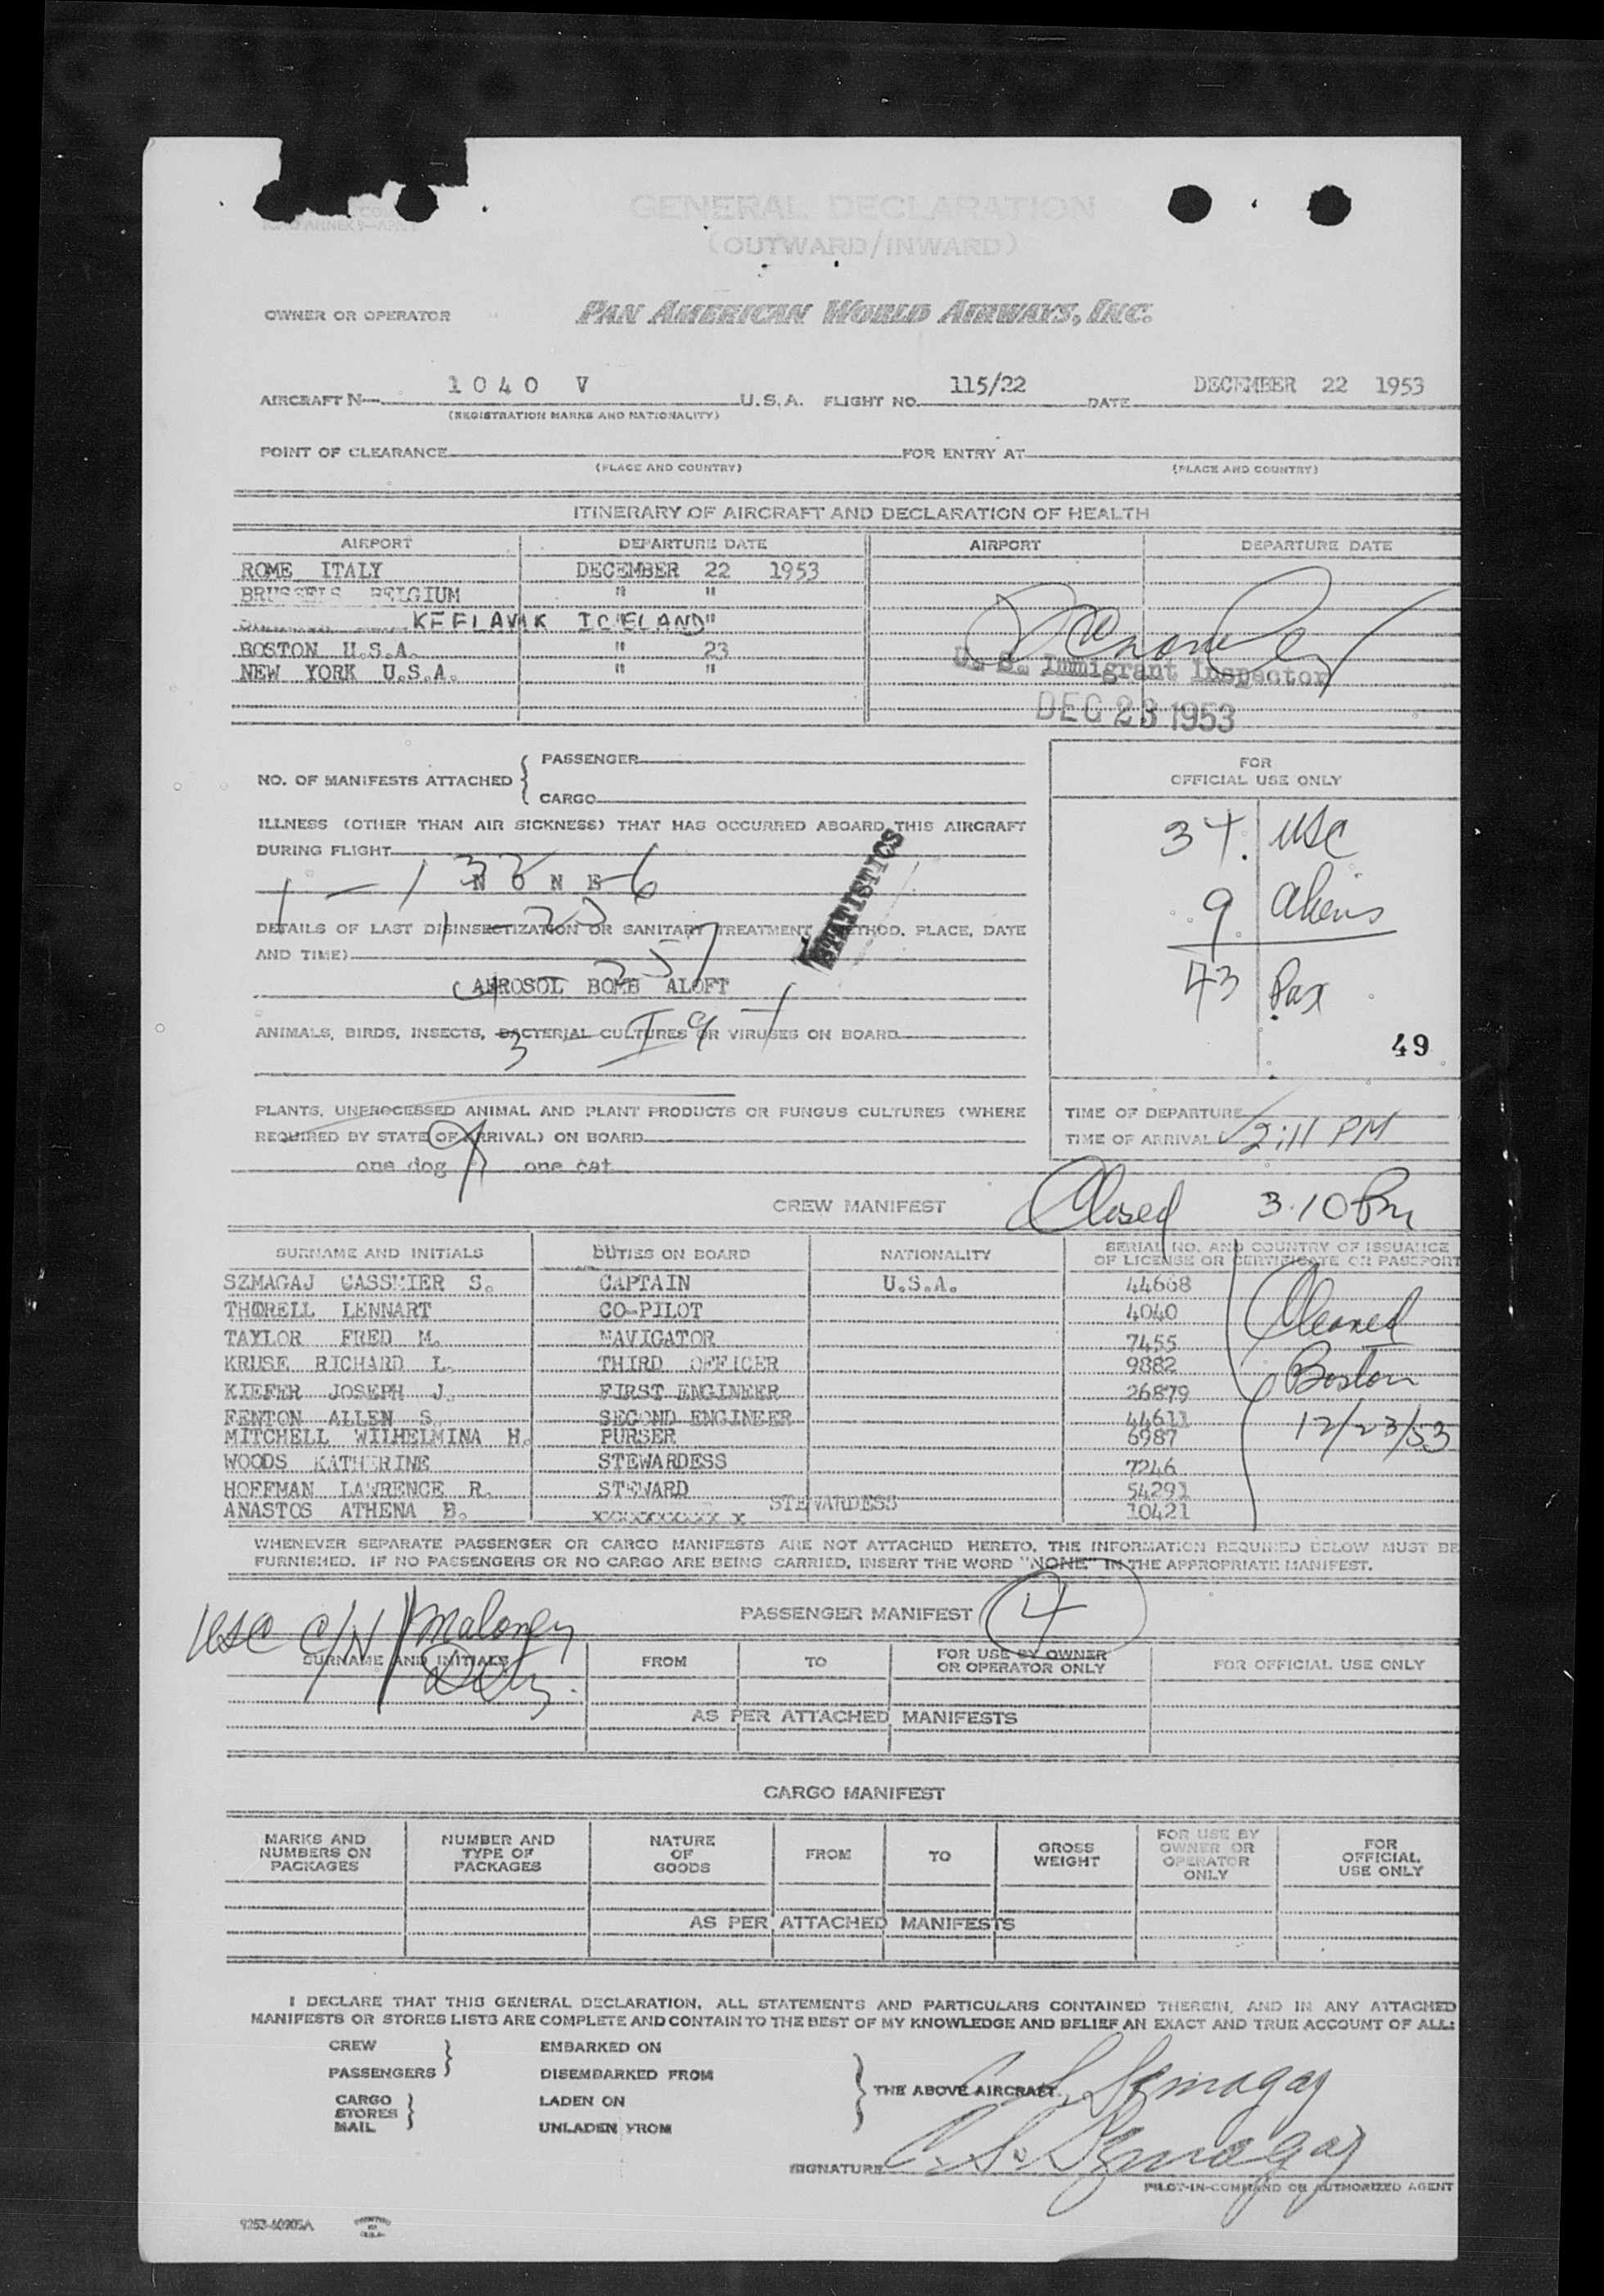 GENERAL DECLARATION
(OUTWARD/INWARD)
OWNER OR OPERATOR PAN AMERICAN WORLD AIRWAYS, INC.
AIRCRAFT N— 1040 V U.S.A. FLIGHT NO. 115/22 DATE DECEMBER 22 1953
(REGISTRATION MARKS AND NATIONALITY)
POINT OF CLEARANCE FOR ENTRY AT
(PLACE AND COUNTRY) (PLACE AND COUNTRY)
ITINERARY OF AIRCRAFT AND DECLARATION OF HEALTH
AIRPORT DEPARTURE DATE AIRPORT DEPARTURE DATE
ROME ITALY DECEMBER 22 1953
BRUSSELS BELGIUM " "
KEFLAVIK ICELAND "
BOSTON U.S.A. " 23
NEW YORK U.S.A. " "
U. S. Immigrant Inspector
DEC 23 1953
NO. OF MANIFESTS ATTACHED { PASSENGER
CARGO
FOR
OFFICIAL USE ONLY
34 USC
9 Aliens
43 Pax
49
ILLNESS (OTHER THAN AIR SICKNESS) THAT HAS OCCURRED ABOARD THIS AIRCRAFT
DURING FLIGHT
NONE
STATISTICS
DETAILS OF LAST DISINSECTIZATION OR SANITARY TREATMENT (METHOD, PLACE, DATE
AND TIME)
AEROSOL BOMB ALOFT
ANIMALS, BIRDS, INSECTS, BACTERIAL CULTURES OR VIRUSES ON BOARD
PLANTS, UNPROCESSED ANIMAL AND PLANT PRODUCTS OR FUNGUS CULTURES (WHERE
REQUIRED BY STATE OF ARRIVAL) ON BOARD
one dog one cat
TIME OF DEPARTURE
TIME OF ARRIVAL 2:11 PM
CREW MANIFEST Closed 3.10 Pm
SURNAME AND INITIALS DUTIES ON BOARD NATIONALITY SERIAL NO. AND COUNTRY OF ISSUANCE
OF LICENSE OR CERTIFICATE OR PASSPORT
SZMAGAJ CASSMIER S. CAPTAIN U.S.A. 44668
THORELL LENNART CO-PILOT 4040
TAYLOR FRED M. NAVIGATOR 7455
KRUSE RICHARD L. THIRD OFFICER 9882
KIEFER JOSEPH J. FIRST ENGINEER 26879
FENTON ALLEN S. SECOND ENGINEER 44611
MITCHELL WILHELMINA H. PURSER 6987
WOODS KATHERINE STEWARDESS 7246
HOFFMAN LAWRENCE R. STEWARD 54291
ANASTOS ATHENA B. xxxxxxxxxx x STEWARDESS 10421
Cleared
Boston
12/23/53
WHENEVER SEPARATE PASSENGER OR CARGO MANIFESTS ARE NOT ATTACHED HERETO, THE INFORMATION REQUIRED BELOW MUST BE
FURNISHED. IF NO PASSENGERS OR NO CARGO ARE BEING CARRIED, INSERT THE WORD "NONE" IN THE APPROPRIATE MANIFEST.
USC C/N Maloney
PASSENGER MANIFEST 4
SURNAME AND INITIALS FROM TO FOR USE BY OWNER
OR OPERATOR ONLY FOR OFFICIAL USE ONLY
AS PER ATTACHED MANIFESTS
CARGO MANIFEST
MARKS AND
NUMBERS ON
PACKAGES NUMBER AND
TYPE OF
PACKAGES NATURE
OF
GOODS FROM TO GROSS
WEIGHT FOR USE BY
OWNER OR
OPERATOR
ONLY FOR
OFFICIAL
USE ONLY
AS PER ATTACHED MANIFESTS
I DECLARE THAT THIS GENERAL DECLARATION, ALL STATEMENTS AND PARTICULARS CONTAINED THEREIN, AND IN ANY ATTACHED
MANIFESTS OR STORES LISTS ARE COMPLETE AND CONTAIN TO THE BEST OF MY KNOWLEDGE AND BELIEF AN EXACT AND TRUE ACCOUNT OF ALL:
CREW EMBARKED ON
PASSENGERS DISEMBARKED FROM
CARGO LADEN ON
STORES
MAIL UNLADEN FROM
THE ABOVE AIRCRAFT. C. S. Szmagaj
SIGNATURE C. S. Szmagaj
PILOT-IN-COMMAND OR AUTHORIZED AGENT
9253-60905A PRINTED IN U.S.A.